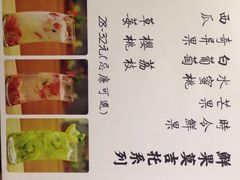 鮮果莫吉托系列
時令鮮果
芒果
水蜜桃
白葡萄
奇異果
西瓜
荔枝
櫻桃
草莓
28-32元(忌廉可選)